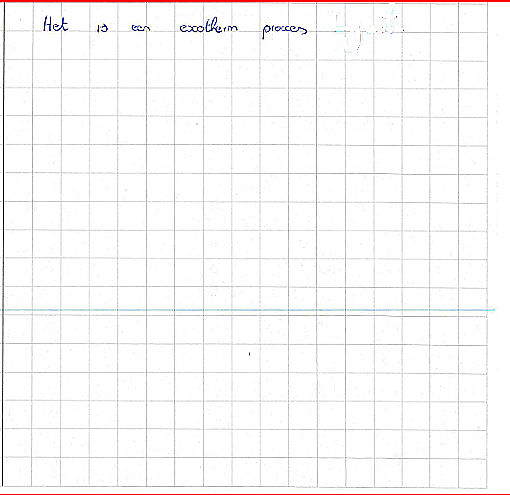 Het is een exotherm proces